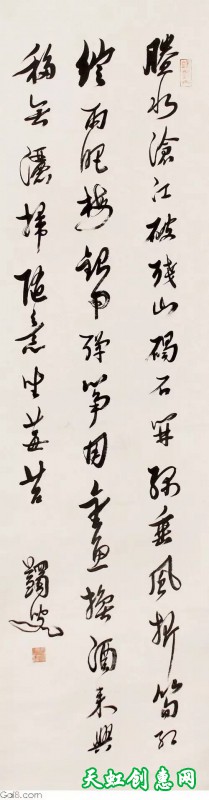 賸水滄江破殘山碣石開綠垂風折筍紅
綻雨肥梅銀甲彈箏用金魚換酒來興
移無灑掃隨意坐莓苔
蠲叟
天虹创意网